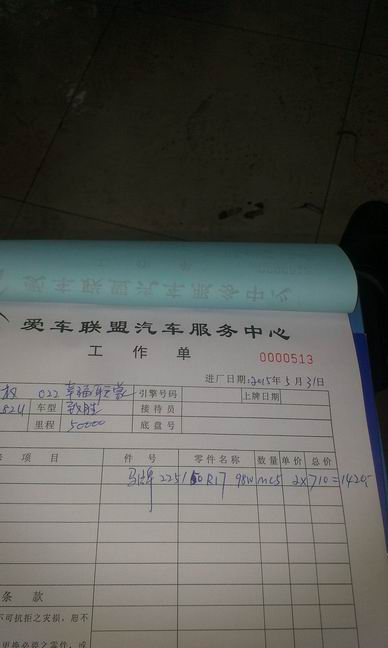 爱车联盟汽车服务中心
工作单
0000513
进厂日期:2015年5月31日
022 幸福 引擎号码 上牌日期
824 车型 致胜 接待员
里程 50000 底盘号
项目 件号 零件名称 数量 单价 总价
马牌 225/50R17 98W MC5 2x710=1420
条款
不可抗拒之灾损,恕不
更换必要之零件,或